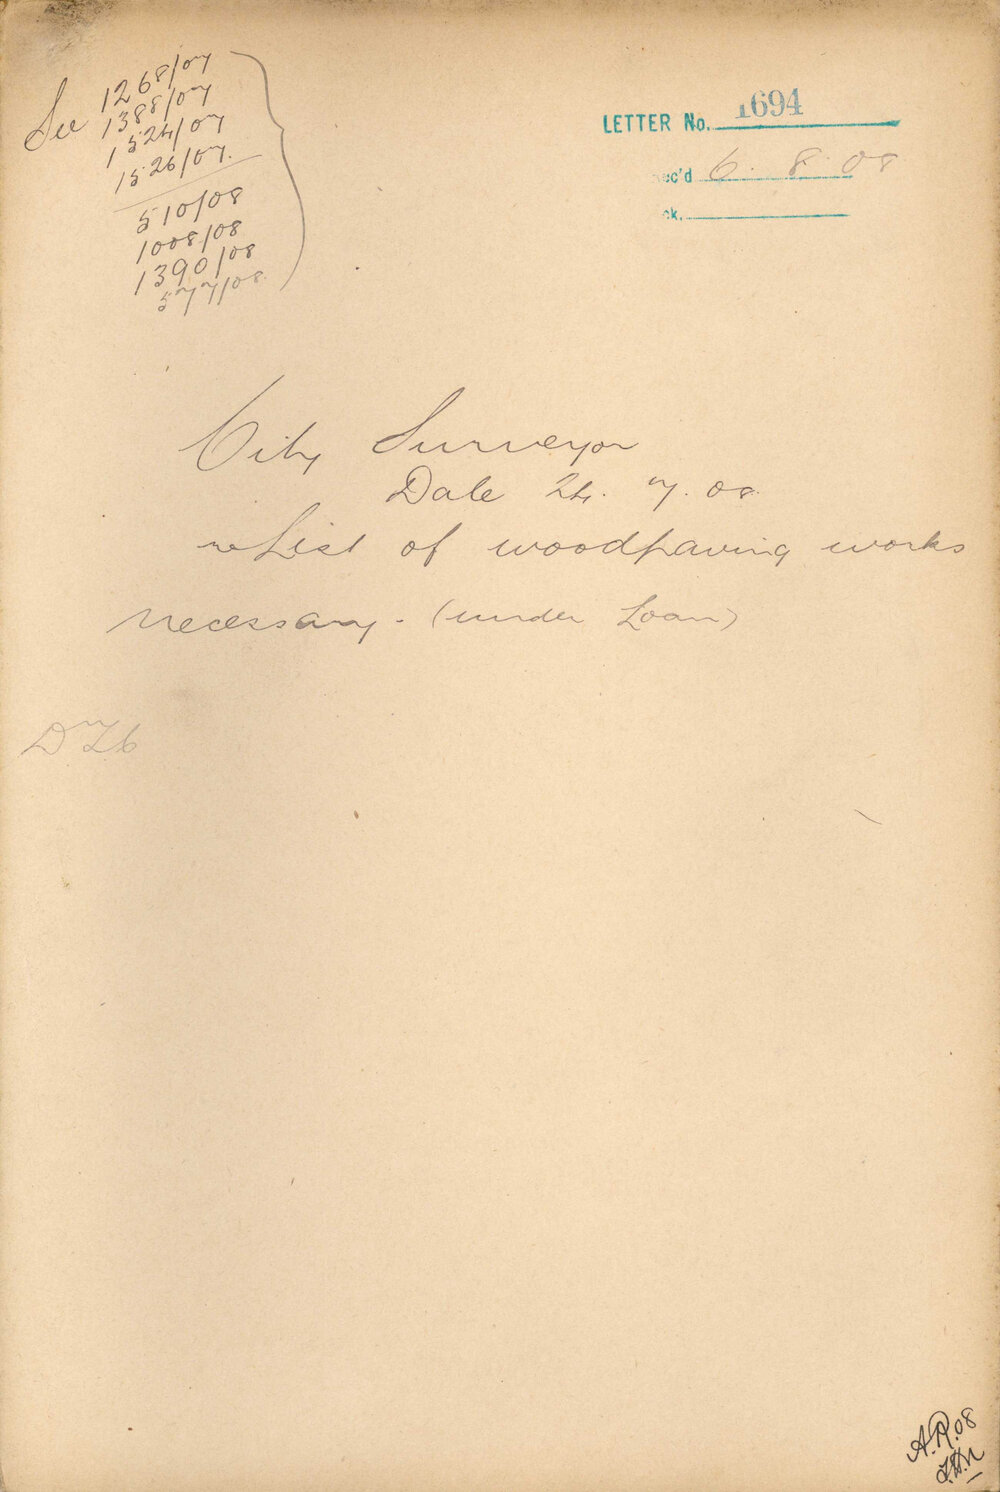 See 1268/07
1388/07
1524/07
1526/07.
510/08
1008/08
1390/08
577/08
LETTER No. 1694
ec'd 6. 8. 08
ck.
City Surveyor
Date 24. 7. 08.
re List of woodpaving works
necessary. (under Loan)
A.R. 08